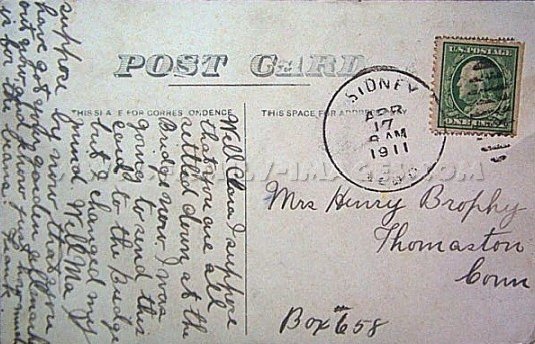 POST CARD
THIS SPACE FOR CORRESPONDENCE
THIS SPACE FOR ADDRESS
SIDNEY
APR
17
8 AM
1911
U.S. POSTAGE
Mrs Henry Brophy
Thomaston
Conn
Box 658
Well Clara I suppose
that you are all
settled down at the
Bridge now I was
going to send this
card to the Bridge
but I changed my
mind. Well Ma I
suppose by now that you
have got your garden all
out and know just how much
is for the beans. Frank.